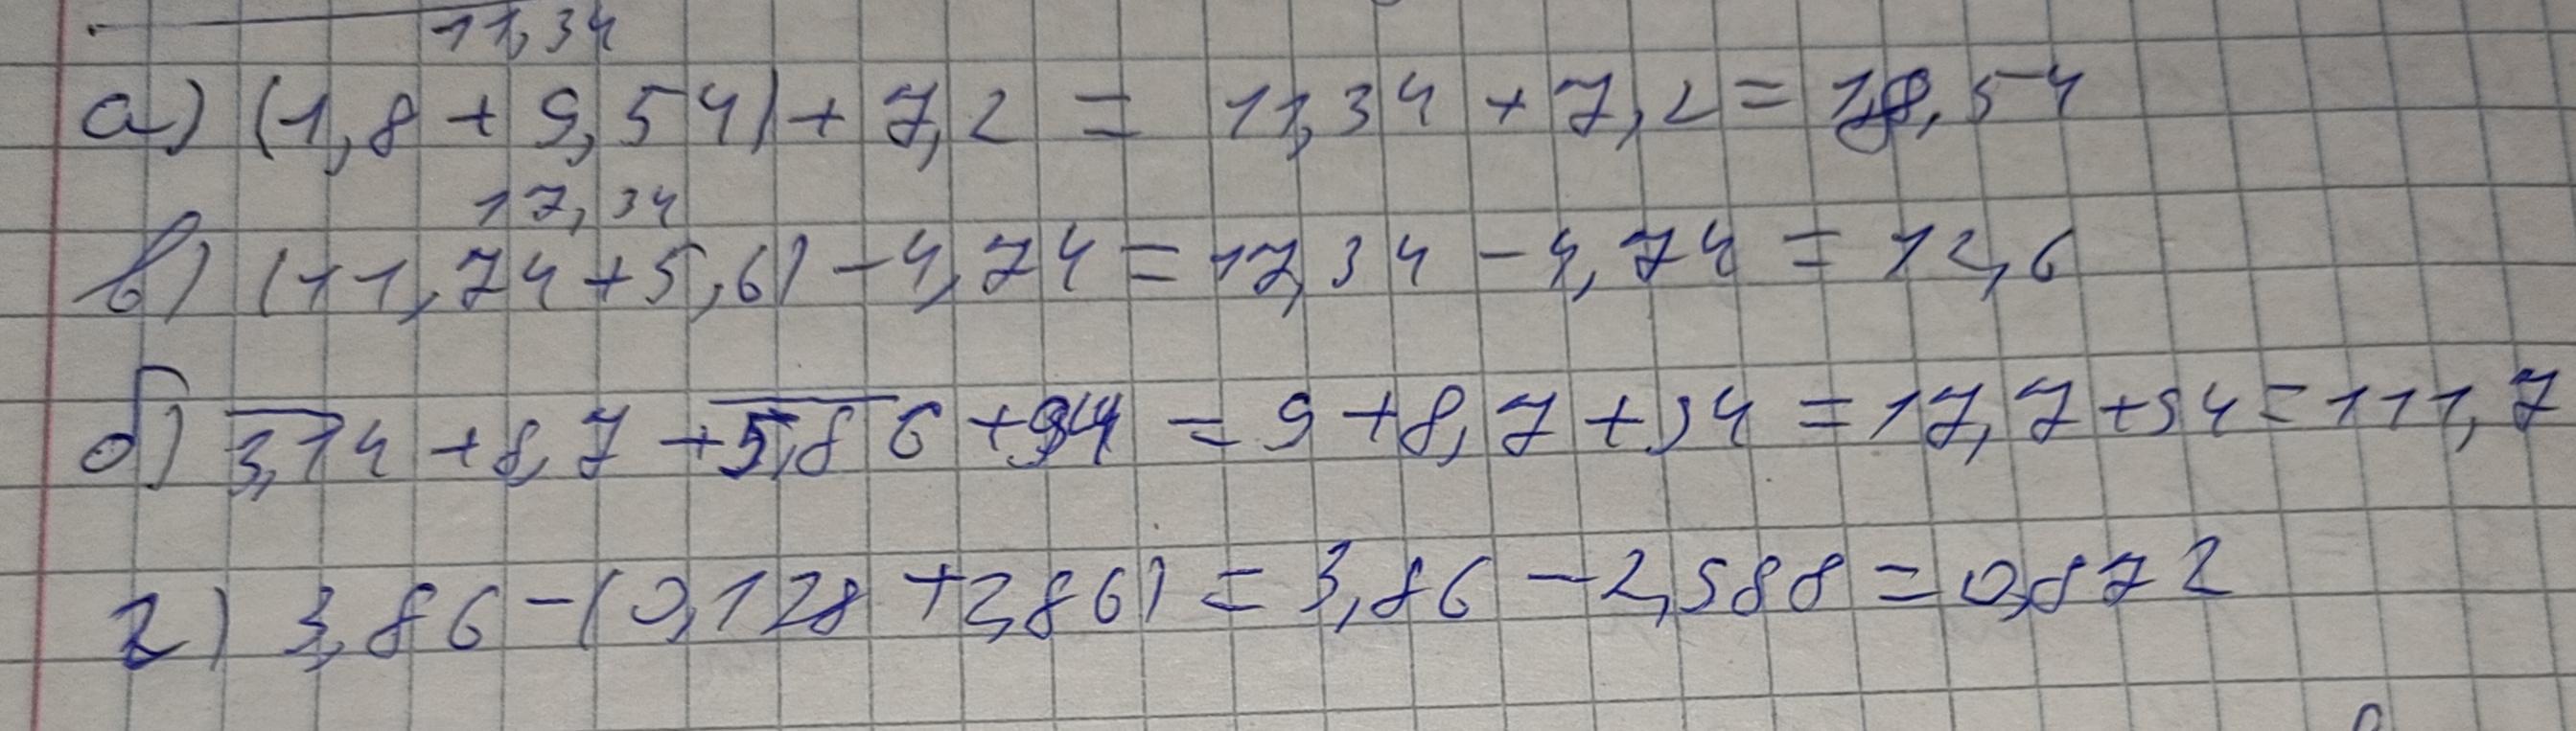 11,34
а) (1,8 + 9,54) + 7,2 = 11,34 + 7,2 = 18,54
17,34
в) (11,74 + 5,6) - 4,74 = 17,34 - 4,74 = 12,6
б) 3,14 + 8,7 + 5,86 + 94 = 9 + 8,7 + 94 = 17,7 + 94 = 111,7
г) 3,86 - (0,128 + 2,86) = 3,86 - 2,988 = 0,872